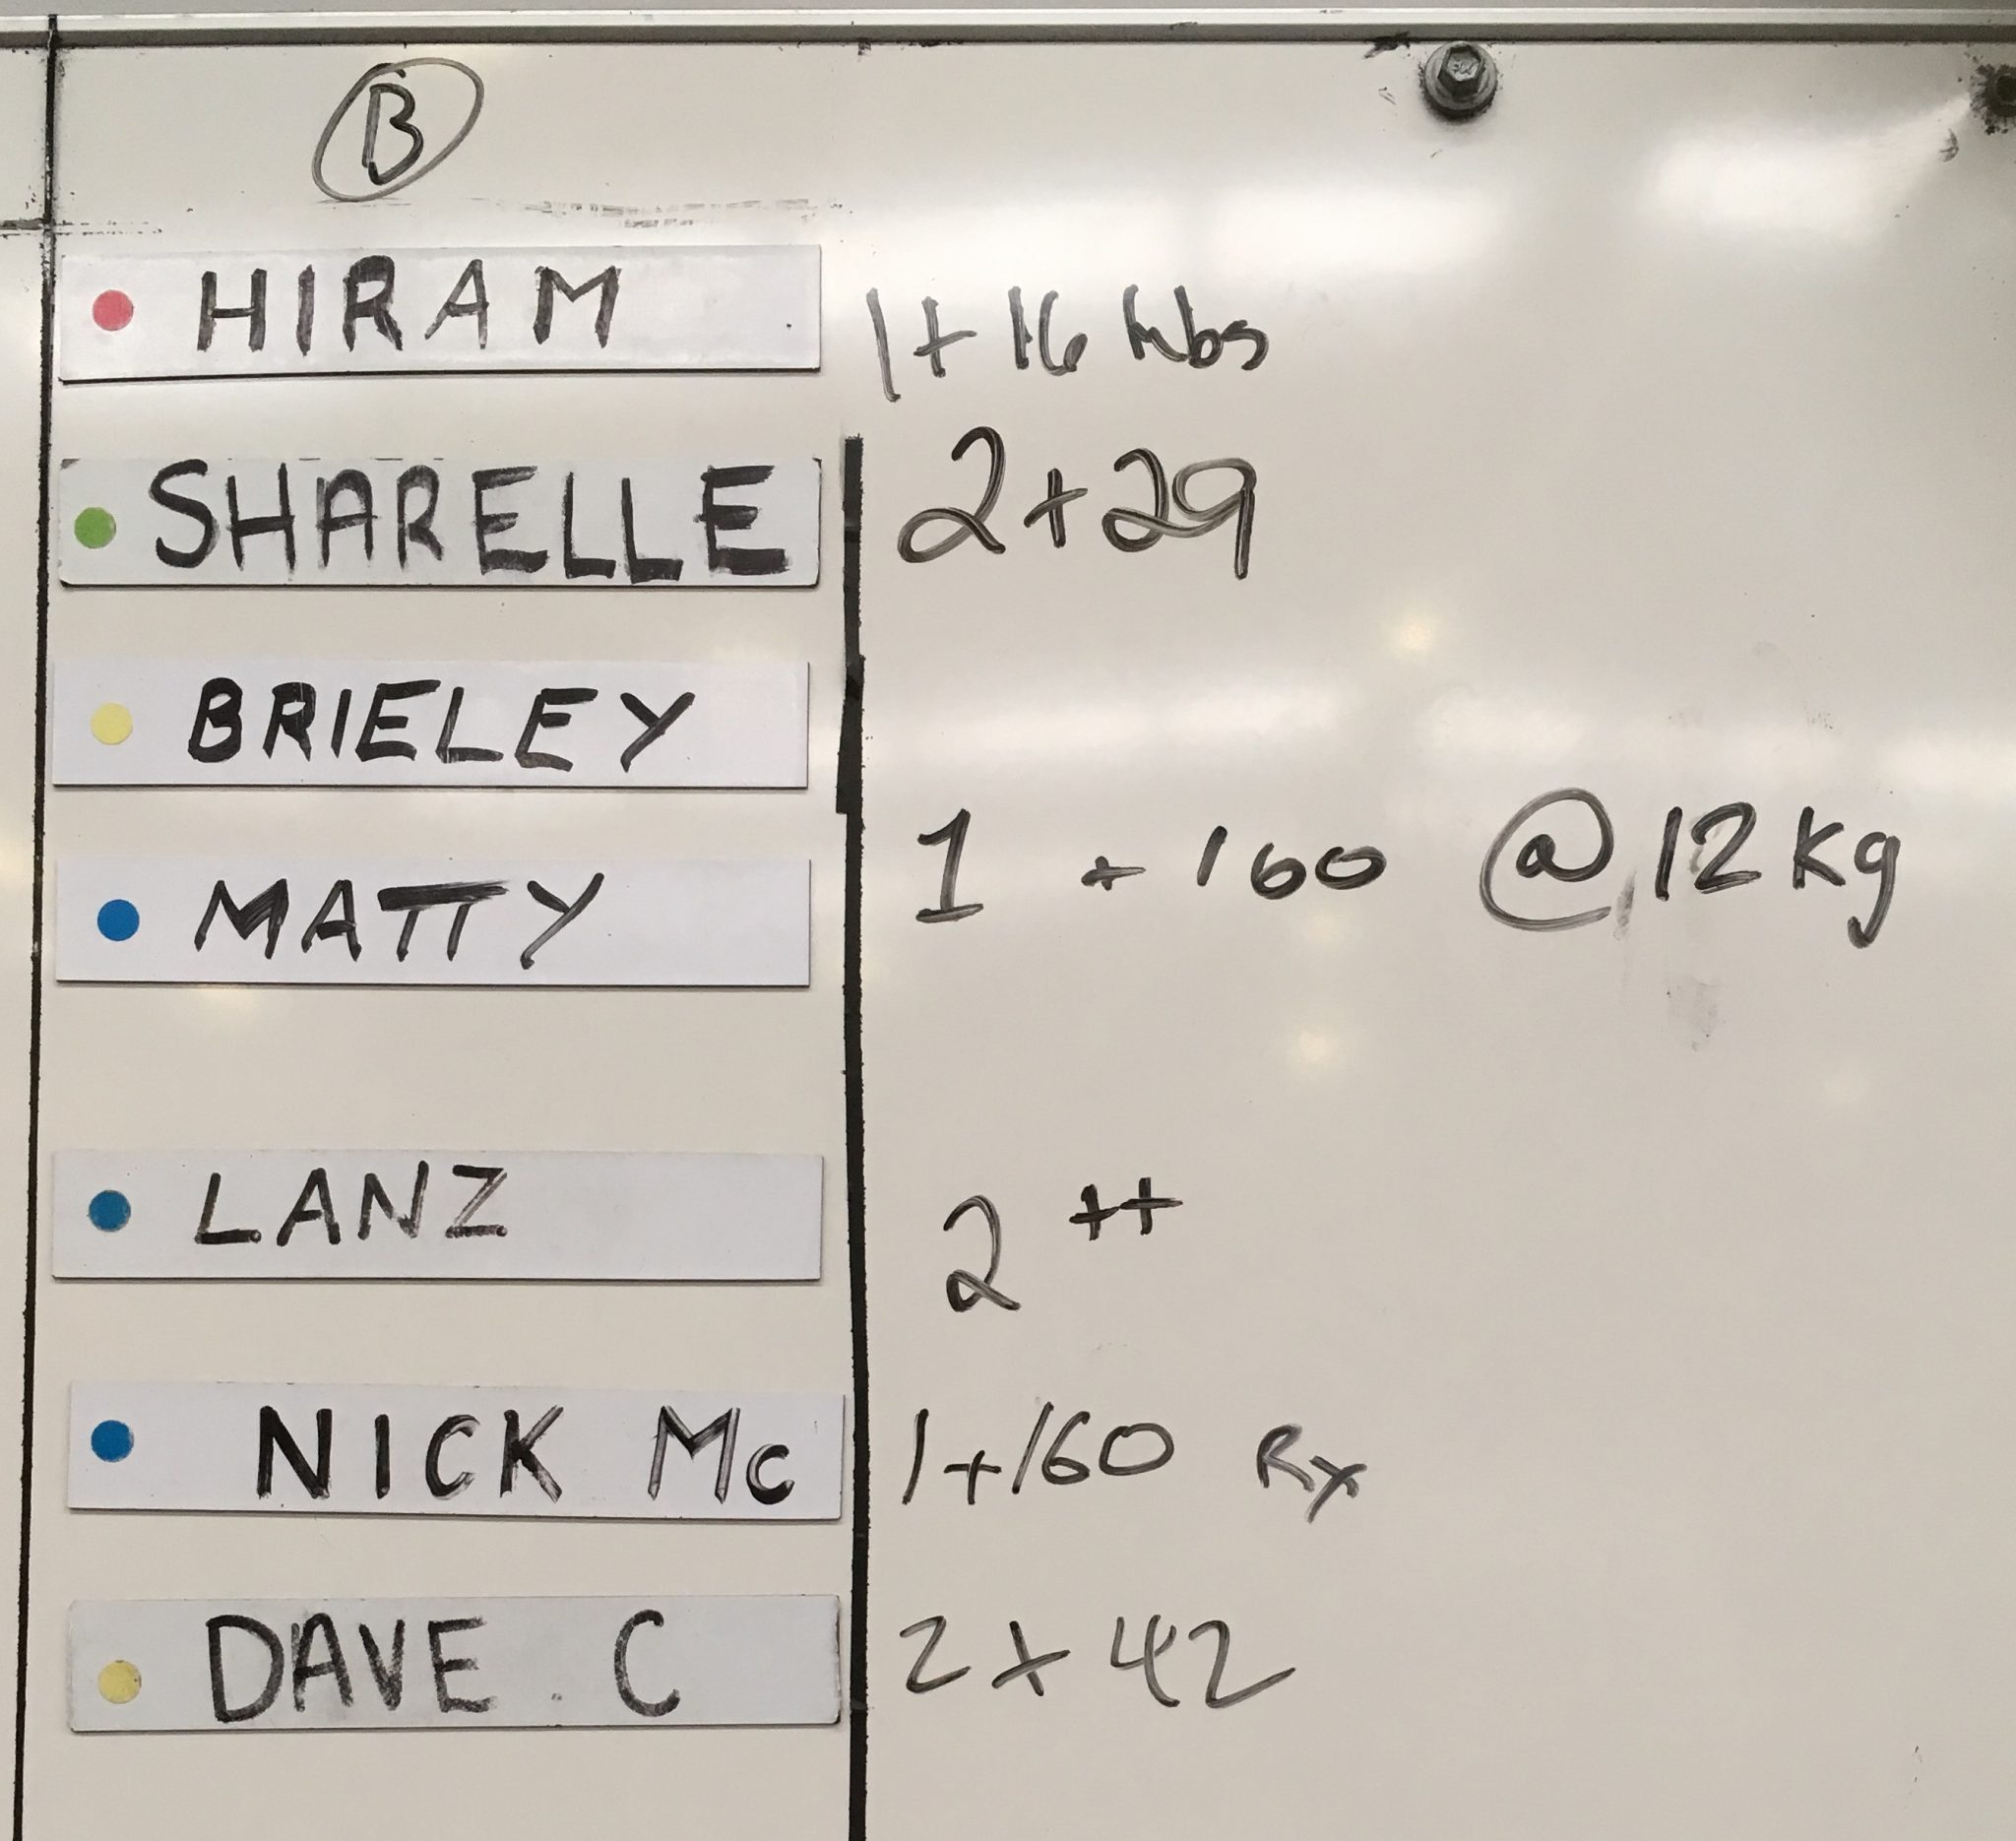 B
HIRAM 1+16
SHARELLE 2+29
BRIELEY
MATTY 1 + 160 @ 12kg
LANZ 2 ++
NICK Mc 1+160 Rx
DAVE C 2+42